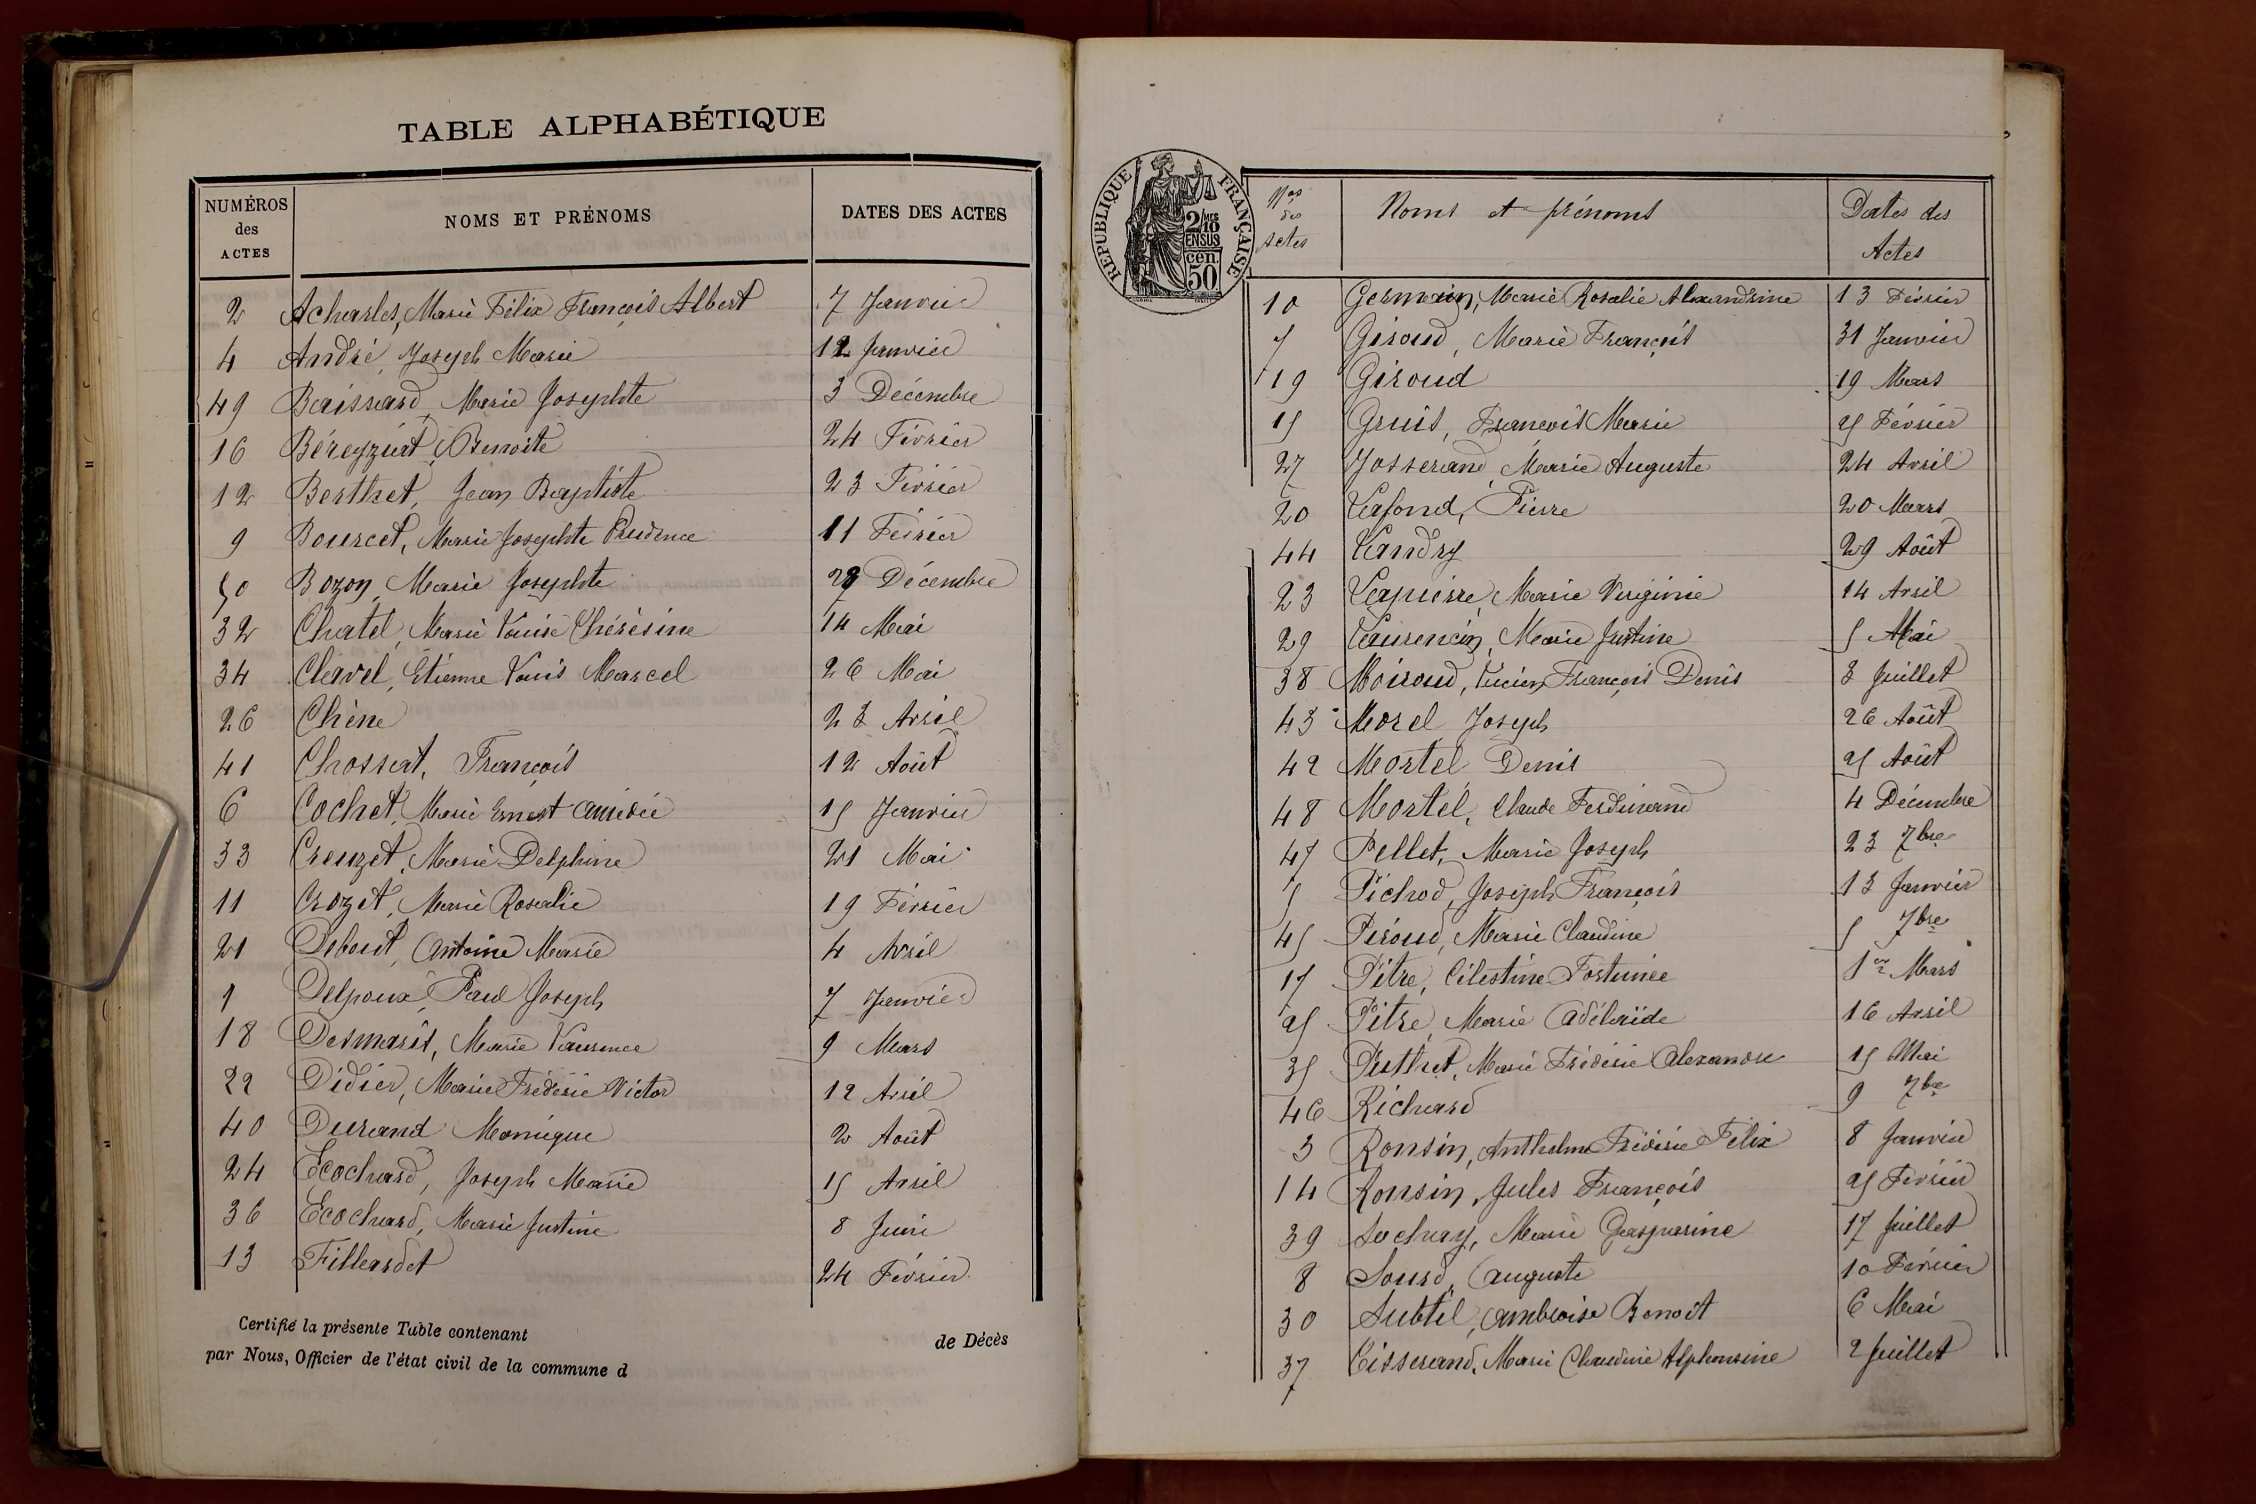 TABLE ALPHABÉTIQUE
NUMÉROS des ACTES NOMS ET PRÉNOMS DATES DES ACTES
2 Acharles, Marie Félix François Albert 7 Janvier
4 André, Joseph Marie 12 Janvier
49 Baissard, Marie Josephte 3 Décembre
16 Béreyziat, Benoite 24 Février
12 Berthet, Jean Baptiste 23 Février
9 Bourcet, Marie Josephte Prudence 11 Février
50 Bozon, Marie Josephte Décembre
32 Chatel, Marie Louise Thérésine 14 Mai
34 Clavel, Etienne Louis Marcel 26 Mai
26 Chêne 23 Avril
41 Chossat, François 12 Août
6 Cochet, Marie Ernest Amédée 15 Janvier
33 Creuzet, Marie Delphine 21 Mai
11 Crozet, Marie Rosalie 19 Février
21 Debout, Antoine Marie 4 Avril
1 Delpoux, Paul Joseph 7 Janvier
18 Desmaris, Marie Laurence 9 Mars
22 Didier, Marie Frédéric Victor 12 Avril
40 Durand Monique 2 Août
24 Ecochard, Joseph Marie 15 Avril
36 Ecochard, Marie Justine 8 Juin
13 Fillardet 24 Février
Certifié la présente Table contenant de Décès
par Nous, Officier de l'état civil de la commune d
RÉPUBLIQUE FRANÇAISE
2/10 MES EN SUS
50 cen.
Nos des Actes Noms et prénoms Dates des Actes
10 Germain, Marie Rosalie Alexandrine 13 Février
7 Giroud, Marie François 31 Janvier
19 Giroud 19 Mars
15 Gruis, François Marie 25 Février
27 Josserand, Marie Auguste 24 Avril
20 Lafond, Pierre 20 Mars
44 Landry 29 Août
23 Lapierre, Marie Virginie 14 Avril
29 Laurencin, Marie Justine 5 Mai
38 Moiroud, Lucien François Denis 3 Juillet
43 Morel Joseph 26 Août
42 Mortel Denis 25 Août
48 Mortel, Claude Ferdinand 4 Décembre
47 Pellet, Marie Joseph 23 7bre
5 Pichod, Joseph François 13 Janvier
45 Piroud, Marie Claudine 5 7bre
17 Pitre, Célestine Fortunée 1er Mars
25 Pitre, Marie Adélaïde 16 Avril
35 Marie Frédéric Alexandre 15 Mai
46 Richard 9 7bre
3 Ronsin, Anthelme Frédéric Félix 8 Janvier
14 Ronsin, Jules François 25 Février
39 Sochay, Marie Gasparine 17 Juillet
8 Sourd, Auguste 10 Février
30 Subtil, Ambroise Benoit 6 Mai
37 Tisserand, Marie Claudine Alphonsine 2 Juillet